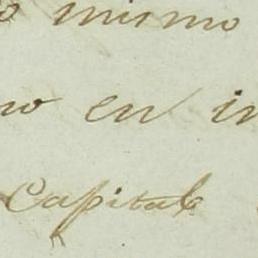 o mismo
no en in
Capital